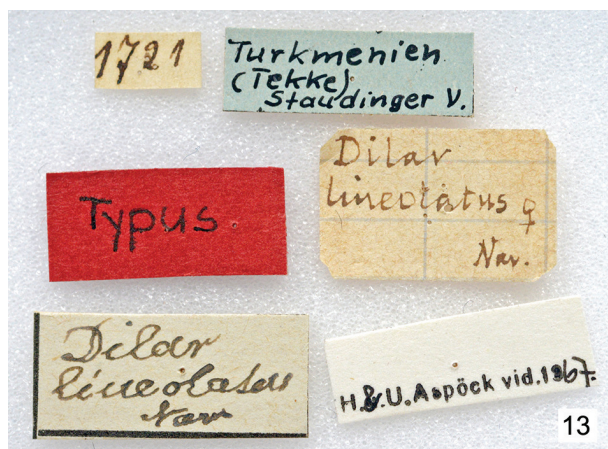 1721
Turkmenien
(Tekke)
Staudinger V.
Typus
Dilar
lineolatus ♀
Nav.
Dilar
lineolatus
Nav.
H.&.U.Aspöck vid.1967.
13